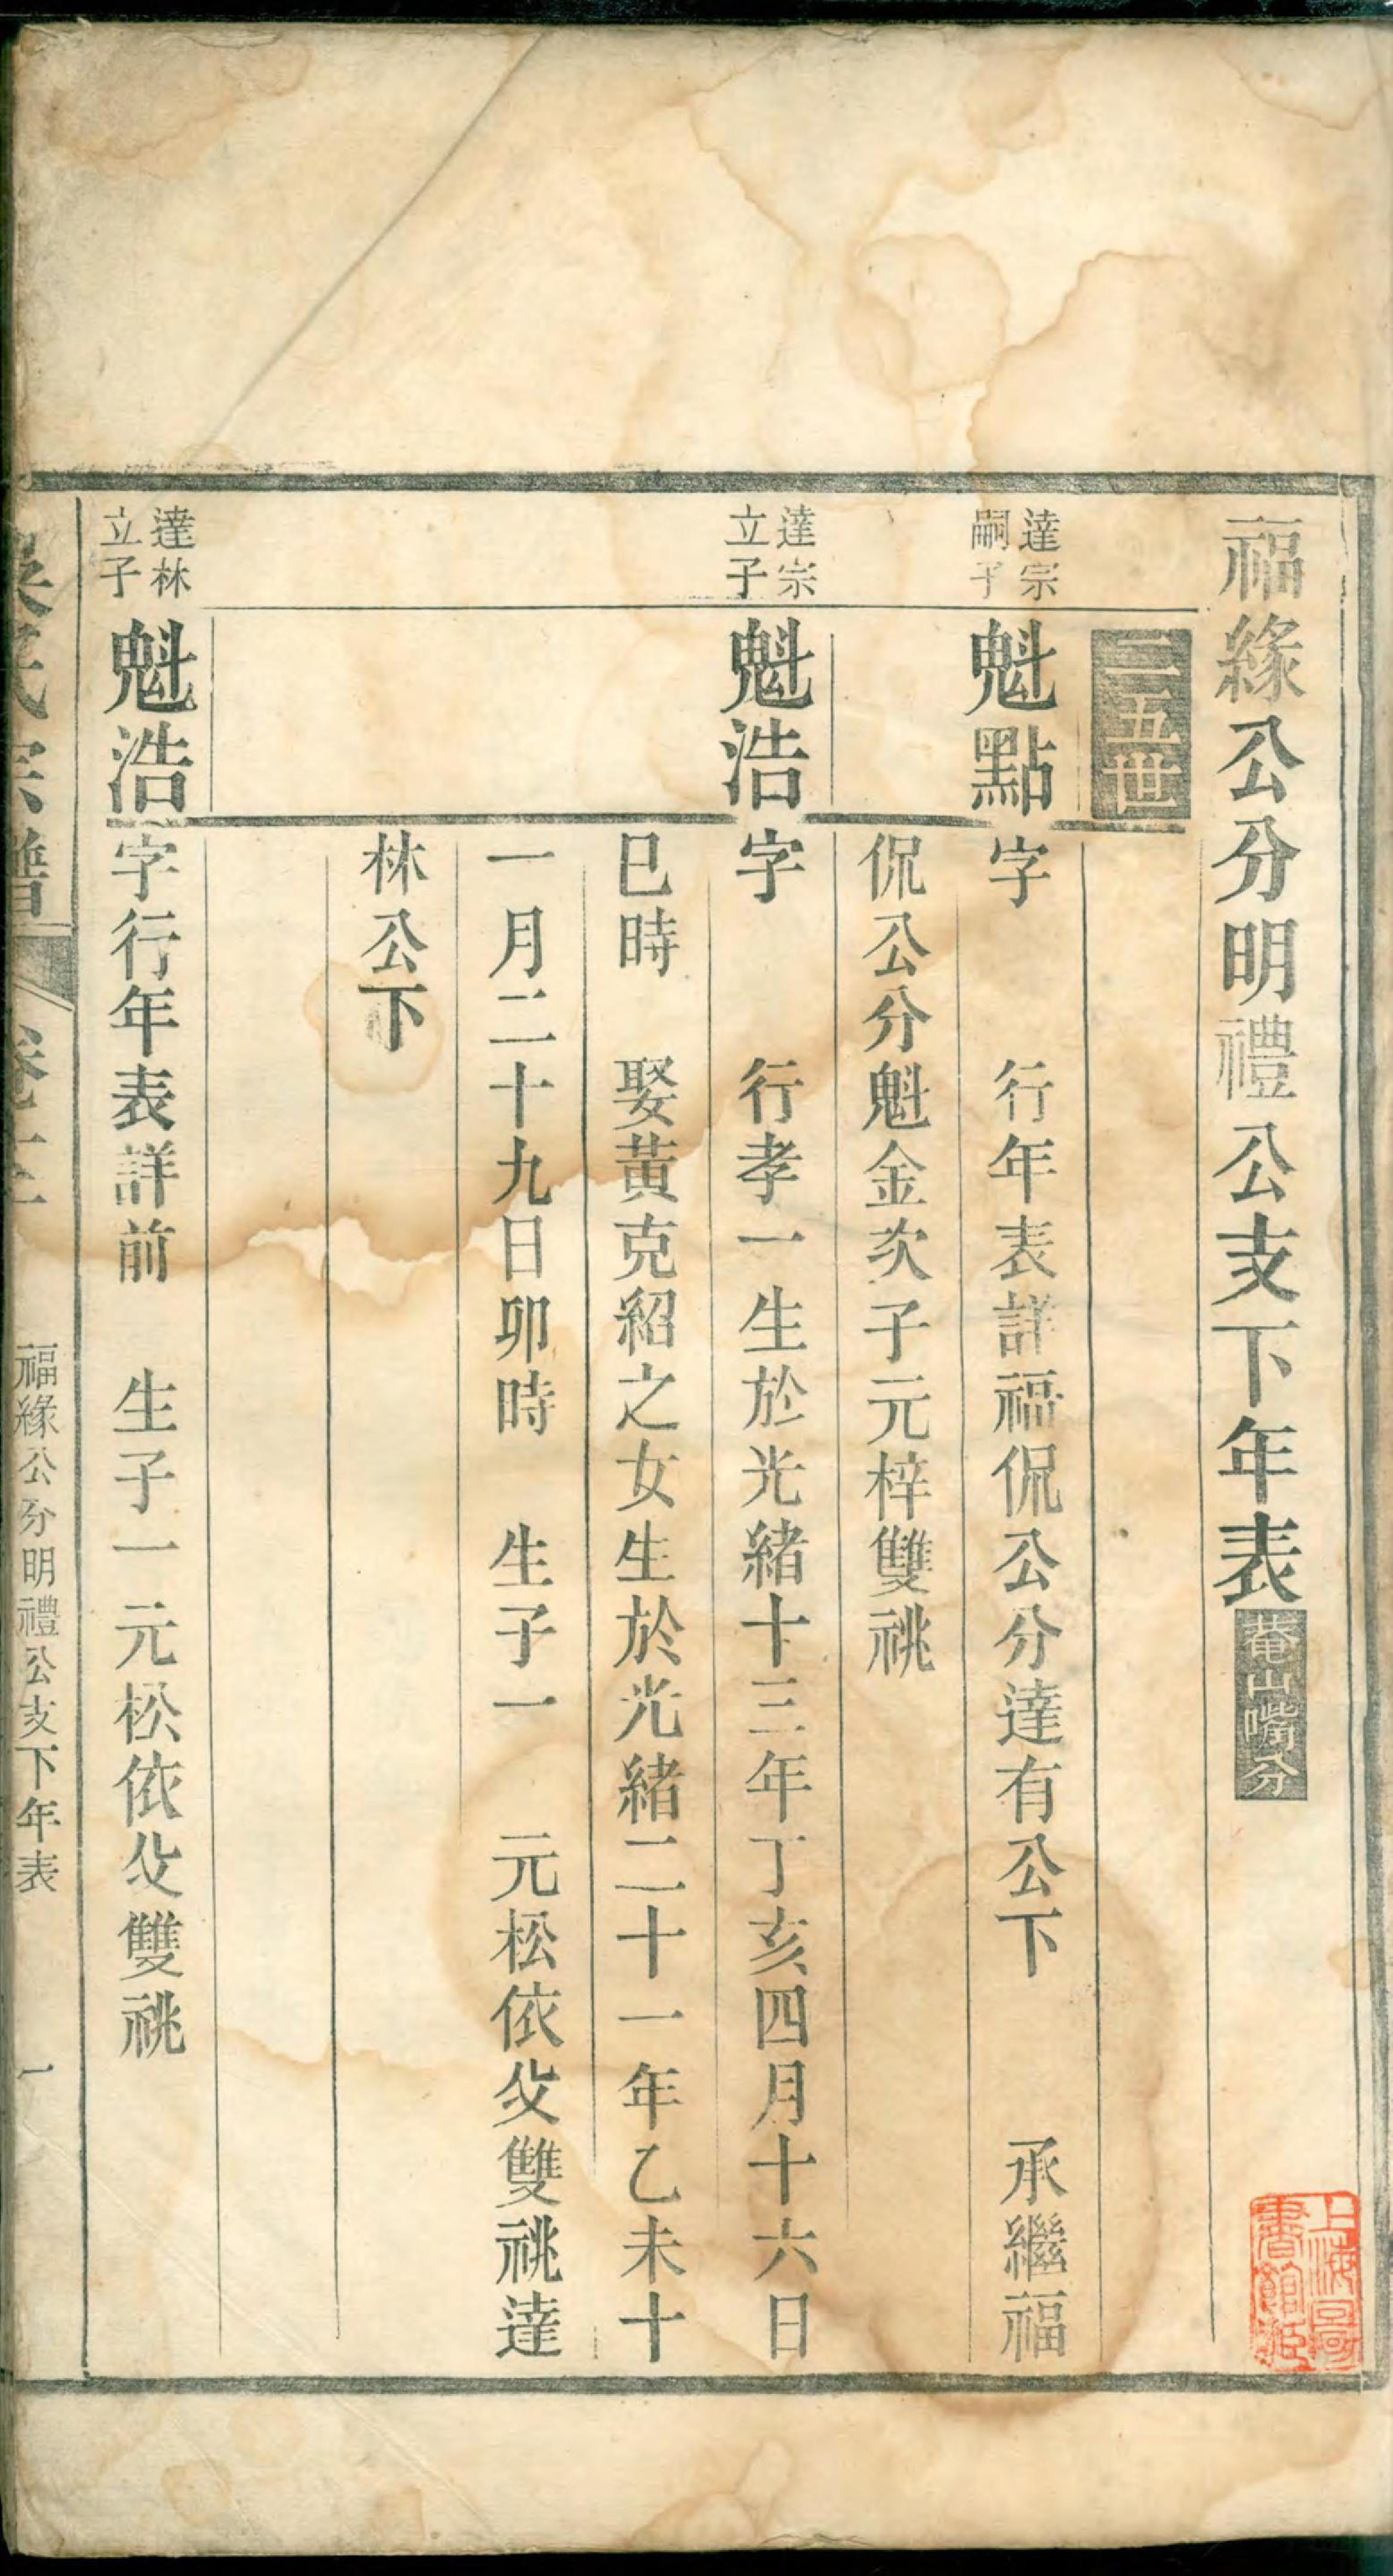 福緣公分明禮公支下年表菴山嘴分
二五世
達宗
嗣子
魁點字 行年表詳福侃公分達有公下 承繼福
侃公分魁金次子元梓雙祧
達宗
立子
魁浩字 行孝一生於光緒十三年丁亥四月十六日
巳時 娶黃克紹之女生於光緒二十一年乙未十
一月二十九日卯時 生子一 元松依父雙祧達
林公下
達林
立子
魁浩字行年表詳前 生子一元松依父雙祧
氏宗譜 卷 福緣公分明禮公支下年表 一
上海圖
書館